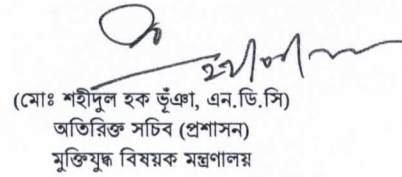 (মোঃ শহীদুল হক ভূঁঞা, এন.ডি.সি)
অতিরিক্ত সচিব (প্রশাসন)
মুক্তিযুদ্ধ বিষয়ক মন্ত্রণালয়